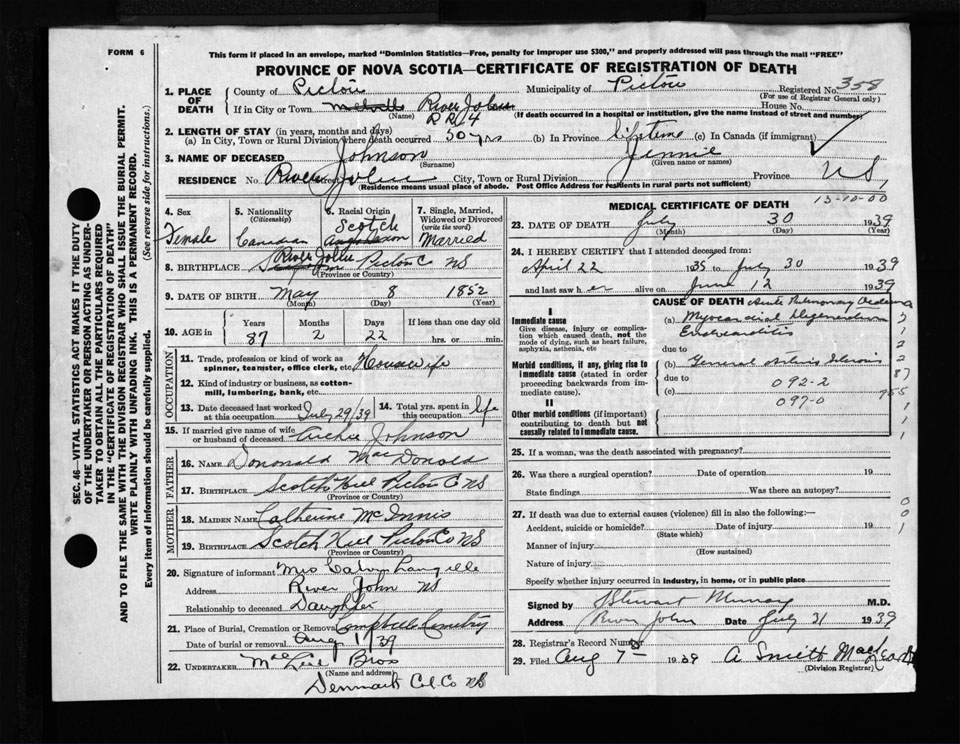 FORM 6
This form if placed in an envelope, marked "Dominion Statistics—Free, penalty for improper use $300," and properly addressed will pass through the mail "FREE"
PROVINCE OF NOVA SCOTIA—CERTIFICATE OF REGISTRATION OF DEATH
1. PLACE OF DEATH
County of Pictou Municipality of Pictou Registered No. 358
(For use of Registrar General only)
If in City or Town River John House No.
(Name) R R 4 (If death occurred in a hospital or institution, give the name instead of street and number)
2. LENGTH OF STAY (in years, months and days)
(a) In City, Town or Rural Division where death occurred 50 yrs (b) In Province lifetime (c) In Canada (if immigrant)
3. NAME OF DECEASED Johnson Jennie
(Surname) (Given name or names)
RESIDENCE No. River John City, Town or Rural Division Province N S,
(Residence means usual place of abode. Post Office Address for residents in rural parts not sufficient)
13-10-00
4. Sex Female
5. Nationality (Citizenship) Canadian
6. Racial Origin Scotch
7. Single, Married, Widowed or Divorced (write the word) Married
8. BIRTHPLACE River John Pictou Co NS
(Province or Country)
9. DATE OF BIRTH May 8 1852
(Month) (Day) (Year)
10. AGE in Years Months Days If less than one day old
87 2 22 hrs. or min.
OCCUPATION
11. Trade, profession or kind of work as spinner, teamster, office clerk, etc. Housewife
12. Kind of industry or business, as cotton-mill, lumbering, bank, etc.
13. Date deceased last worked at this occupation July 29/39 14. Total yrs. spent in this occupation life
15. If married give name of wife or husband of deceased Archie Johnson
FATHER
16. NAME Dononald MacDonold
17. BIRTHPLACE Scotch Hill Pictou C NS
(Province or Country)
MOTHER
18. MAIDEN NAME Catherine McInnis
19. BIRTHPLACE Scotch Hill Pictou Co NS
(Province or Country)
20. Signature of informant Mrs Calvin Langille
Address River John NS
Relationship to deceased Daughter
21. Place of Burial, Cremation or Removal Campbell Cemetry
Date of burial or removal Aug 1/39
22. UNDERTAKER MacLeod Bros
(Name and address)
Denmark Col Co NS
MEDICAL CERTIFICATE OF DEATH
23. DATE OF DEATH July 30 1939
(Month) (Day) (Year)
24. I HEREBY CERTIFY that I attended deceased from:
April 22 1935 to July 30 1939
and last saw h er alive on June 12 1939
CAUSE OF DEATH Acute Pulmonary Oedema
I
Immediate cause
Give disease, injury or complication which caused death, not the mode of dying, such as heart failure, asphyxia, asthenia, etc
(a) Myocardial Degeneration
Endocarditis
due to
Morbid conditions, if any, giving rise to immediate cause (stated in order proceeding backwards from immediate cause)
(b) General Arterio Sclerosis
due to 092-2
(c)
097-0
II
Other morbid conditions (if important) contributing to death but not causally related to immediate cause.
25. If a woman, was the death associated with pregnancy?
26. Was there a surgical operation? Date of operation 19
State findings Was there an autopsy?
27. If death was due to external causes (violence) fill in also the following:—
Accident, suicide or homicide? Date of injury 19
(State which)
Manner of injury
(How sustained)
Nature of injury
Specify whether injury occurred in industry, in home, or in public place
Signed by Stewart Murray M.D.
Address River John Date July 31 1939
28. Registrar's Record Number
29. Filed Aug 7 1939 A Smith
(Division Registrar)
SEC. 46—VITAL STATISTICS ACT MAKES IT THE DUTY
OF THE UNDERTAKER OR PERSON ACTING AS UNDER-
TAKER TO OBTAIN ALL THE PARTICULARS REQUIRED
IN THE "CERTIFICATE OF REGISTRATION OF DEATH"
AND TO FILE THE SAME WITH THE DIVISION REGISTRAR WHO SHALL ISSUE THE BURIAL PERMIT.
WRITE PLAINLY WITH UNFADING INK. THIS IS A PERMANENT RECORD.
Every item of information should be carefully supplied. (See reverse side for instructions.)